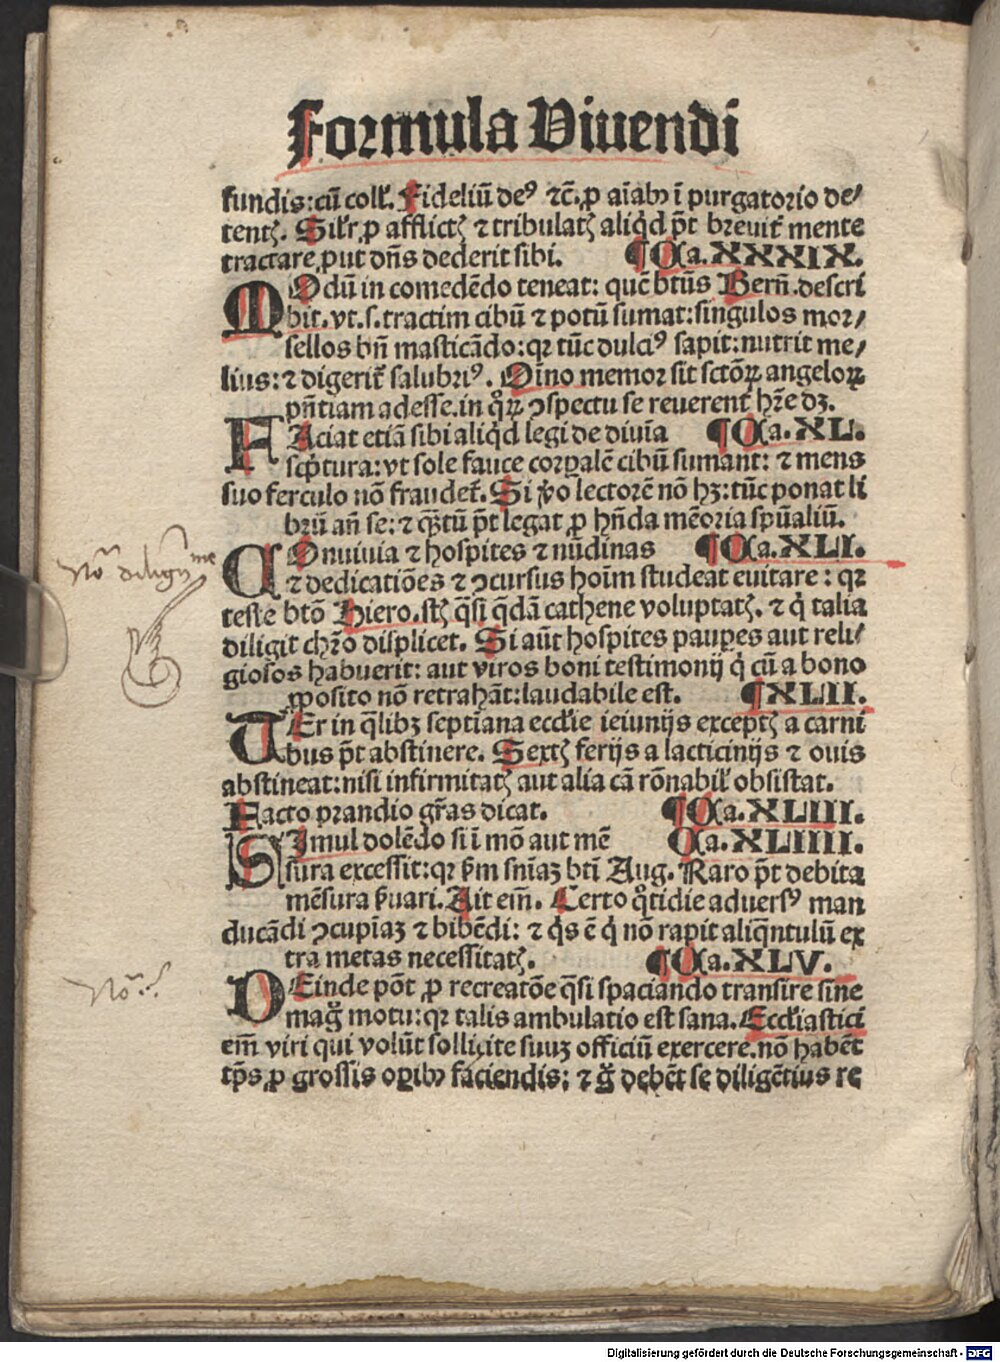 Formula Viuendi
fundis: cū coll̄. Fideliū de⁹ ⁊c̄. ꝓ aīabꝫ ī purgatorio de⸗
tentꝭ. Sil̄r ꝓ afflictꝭ ⁊ tribulatꝭ aliq̇d pōt breuit̄ mente
tractare ꝓut dn̄s dederit sibi. ¶Ca. XXXIX.
MOdū in comedēdo teneat: quē btūs Bern̄. descri
bit. vt. s. tractim cibū ⁊ potū sumat: singulos mor⸗
sellos bn̄ masticādo: qꝛ tūc dulci⁹ sapit: nutrit me⸗
lius: ⁊ digerit̄ salubri⁹. Oīno memor sit sctōꝝ angeloꝝ
pn̄tiam adesse. in q̊ꝝ ꝯspectu se reuerent̄ hr̄e dꝫ.
FAciat etiā sibi aliq̇d legi de diuīa ¶Ca. XL.
scp̄tura: vt sole fauce corꝑalē cibū sumant: ⁊ mens
suo ferculo nō fraudet̄. Si v̊o lectorē nō hꝫ: tūc ponat li
brū an̄ se: ⁊ qꝫtū pōt legat ꝓ hn̄da mēoria spūaliū.
COnuiuia ⁊ hospites ⁊ nūdinas ¶Ca. XLI.
⁊ dedicatiōes ⁊ ꝯcursus hoīm studeat euitare: qꝛ
teste btō Hiero. stꝭ q̄si q̄dā cathene voluptatꝭ. ⁊ q̇ talia
diligit chr̄o displicet. Si aūt hospites pauꝑes aut reli⸗
giosos habuerit: aut viros boni testimonij q̇ cū a bono
ꝓposito nō retrahāt: laudabile est. ¶XLII.
TEr in q̄libꝫ septīana eccl̄ie ieiunijs exceptꝭ a carni
bus pōt abstinere. Sextꝭ ferijs a lacticinijs ⁊ ouis
abstineat: nisi infirmitatꝭ aut alia cā rōnabil̄ obsistat.
Facto prandio gr̄as dicat. ¶Ca. XLIII.
SImul dolēdo si ī mō aut mē Ca. XLIIII.
sura excessit: qꝛ ẜm sniaꝫ btī Aug. Raro pōt debita
mēsura ẜuari. Ait em̄. Certo q̊tidie aduersꝰ man
ducādi ꝯcupīaꝫ ⁊ bibēdi: ⁊ q̇s ē q̇ nō rapit aliq̄ntulū ex
tra metas necessitatꝭ. ¶Ca. XLV.
DEinde pōt ꝓ recreatōe q̄si spaciando transire sine
mag̊ motu: qꝛ talis ambulatio est sana. Eccl̄iastici
em̄ viri qui volūt sollicite suuꝫ officiū exercere. nō habēt
tp̄s ꝓ grossis oꝑibꝫ faciendis: ⁊ g̊ debēt se diligētius re
Digitalisierung gefördert durch die Deutsche Forschungsgemeinschaft - DFG